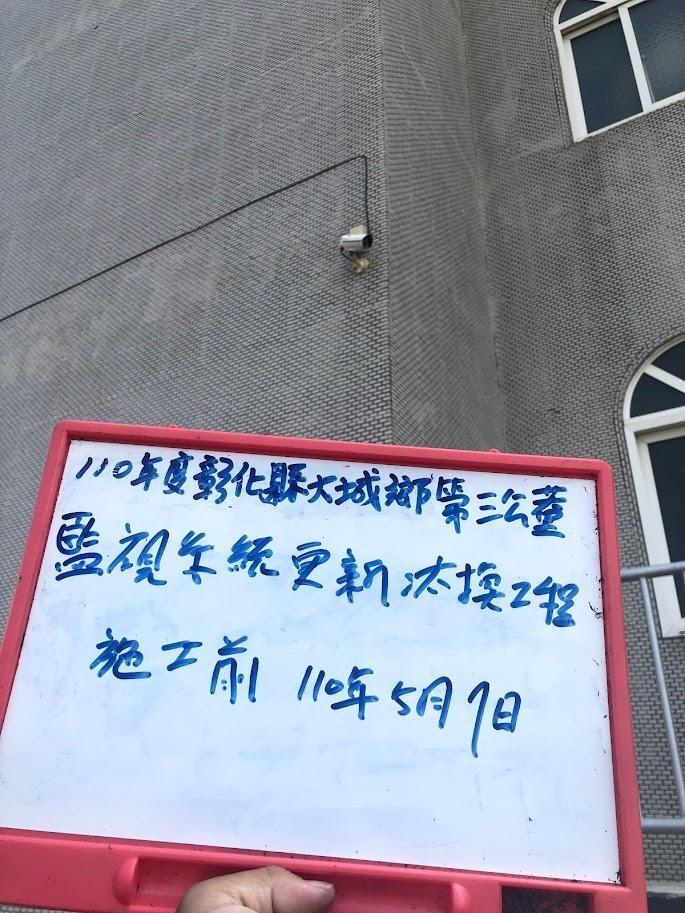 110年度彰化縣大城鄉第三公墓
監視系統更新汰換工程
施工前 110年5月7日